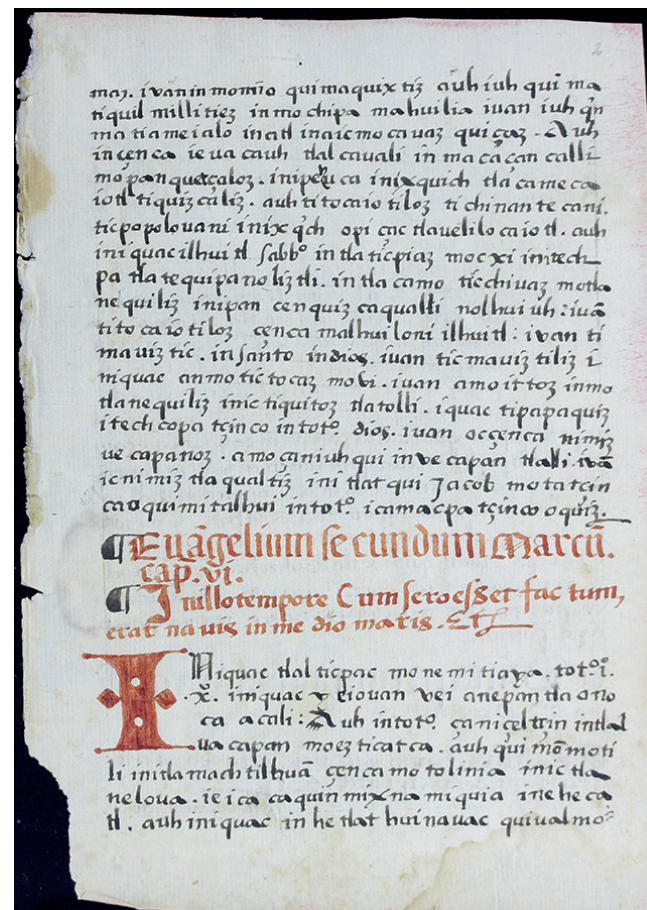 maz. ivan in momiio qui maquix tiz auh iuh qui ma
tiquil milli tiez in mo chipa ma huilia ivan iuh q̃n
ma tia mei alo in atl in aic mo ca vaz qui çaz. Auh
in çen ca ie va cauh tlal cavali in ma ca çan calli
mo pan quetçaloz. in ca in ix quich tla ca me ca
iotl ti quiz caliz. auh ti to caio tiloz ti chinan te cani.
tic po polo va ni in ix q̃ch opi çac tlavelilo ca iotl. auh
ini quac ilhui tl sabbº in tla tic piaz moc xi initech
pa tla te quipa no liz tli. in tla camo tic chivaz motla
ne quiliz in ipan cen quiz ca qualli nolhui uh: ivã
ti to ca io ti loz cenca malhui loni ilhuitl: ivan ti
ma viz tic. in santo in dios. ivan tic ma viz ti liz i
niquac anmo tic to caz mo vi. ivan amo it toz in mo
tla ne qui liz inic ti qui toz tla tolli. iquac ti pa pa quiz
itech copa tçin co in totº. dios. ivan oc çenca nimiz
ve capanoz. amo can iuh qui in ve capan tlalli. ivã
ic ni miz tla qual tiz in i tlat qui Jacob mo ta tcin
ca o qui mi tal hui in totº. i camac pa tçin co o quiz.
¶ Euãgelium se cundum Marcũ.
cap. vi.
¶ In illo tempore Cum sero esset fac tum,
erat na vis in me dio maris. Etc
INiquac tlal tic pac mo ne mi tiaya. totºi.
.xº. in iquac vei ovan vei a nepan tla ono
ca a cali: Auh in totº. ça nicel tcin in tlal
va capan mo ez ti cat ca. auh qui mõ mo ti
li in itla mach til huã çen ca mo to linia in ic tla
ne lo va. ie i ca ca quin mix na mi quia in e he ca
tl. auh in iquac in he tlat hui na vac qui val mo-